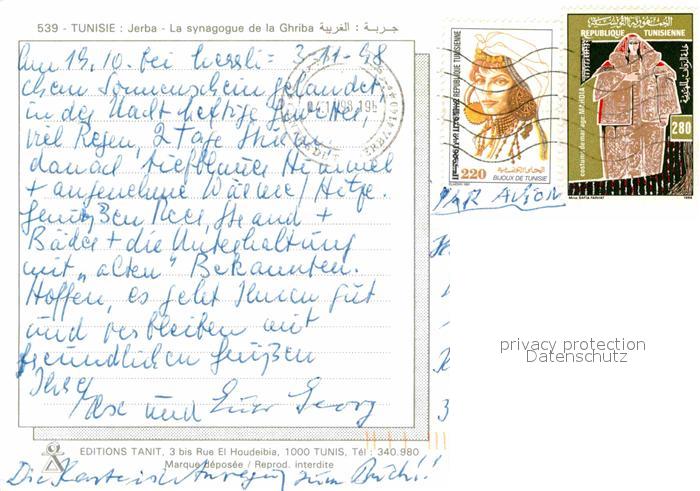 539 - TUNISIE : Jerba - La synagogue de la Ghriba جربة : الغريبة
Am 19.10. bei herrli= 3-11-98
chem Sonnenschein gelandet,
in der Nacht heftige Gewitter,
viel Regen, 2 Tage Sturm
danach tiefblauer Himmel
+ angenehme Wärme / Hitze.
Genießen Meer, Strand +
Bäder + die Unterhaltung
mit "alten" Bekannten.
Hoffen, es geht Ihnen gut
und verbleiben mit
freundlichen Grüßen
Ihre
und Georg
REPUBLIQUE TUNISIENNE
220
BIJOUX DE TUNISIE
الجمهورية التونسية
REPUBLIQUE TUNISIENNE
costume de mariage: MAHDIA
280
PAR AVION
privacy protection
Datenschutz
EDITIONS TANIT, 3 bis Rue El Houdeibia, 1000 TUNIS, Tél : 340.980
Marque déposée / Reprod. interdite
Die Karte ist Anregung zum Buch!!